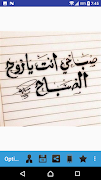 7:48
صباحي انت يا زوج
الصباح
Opti...